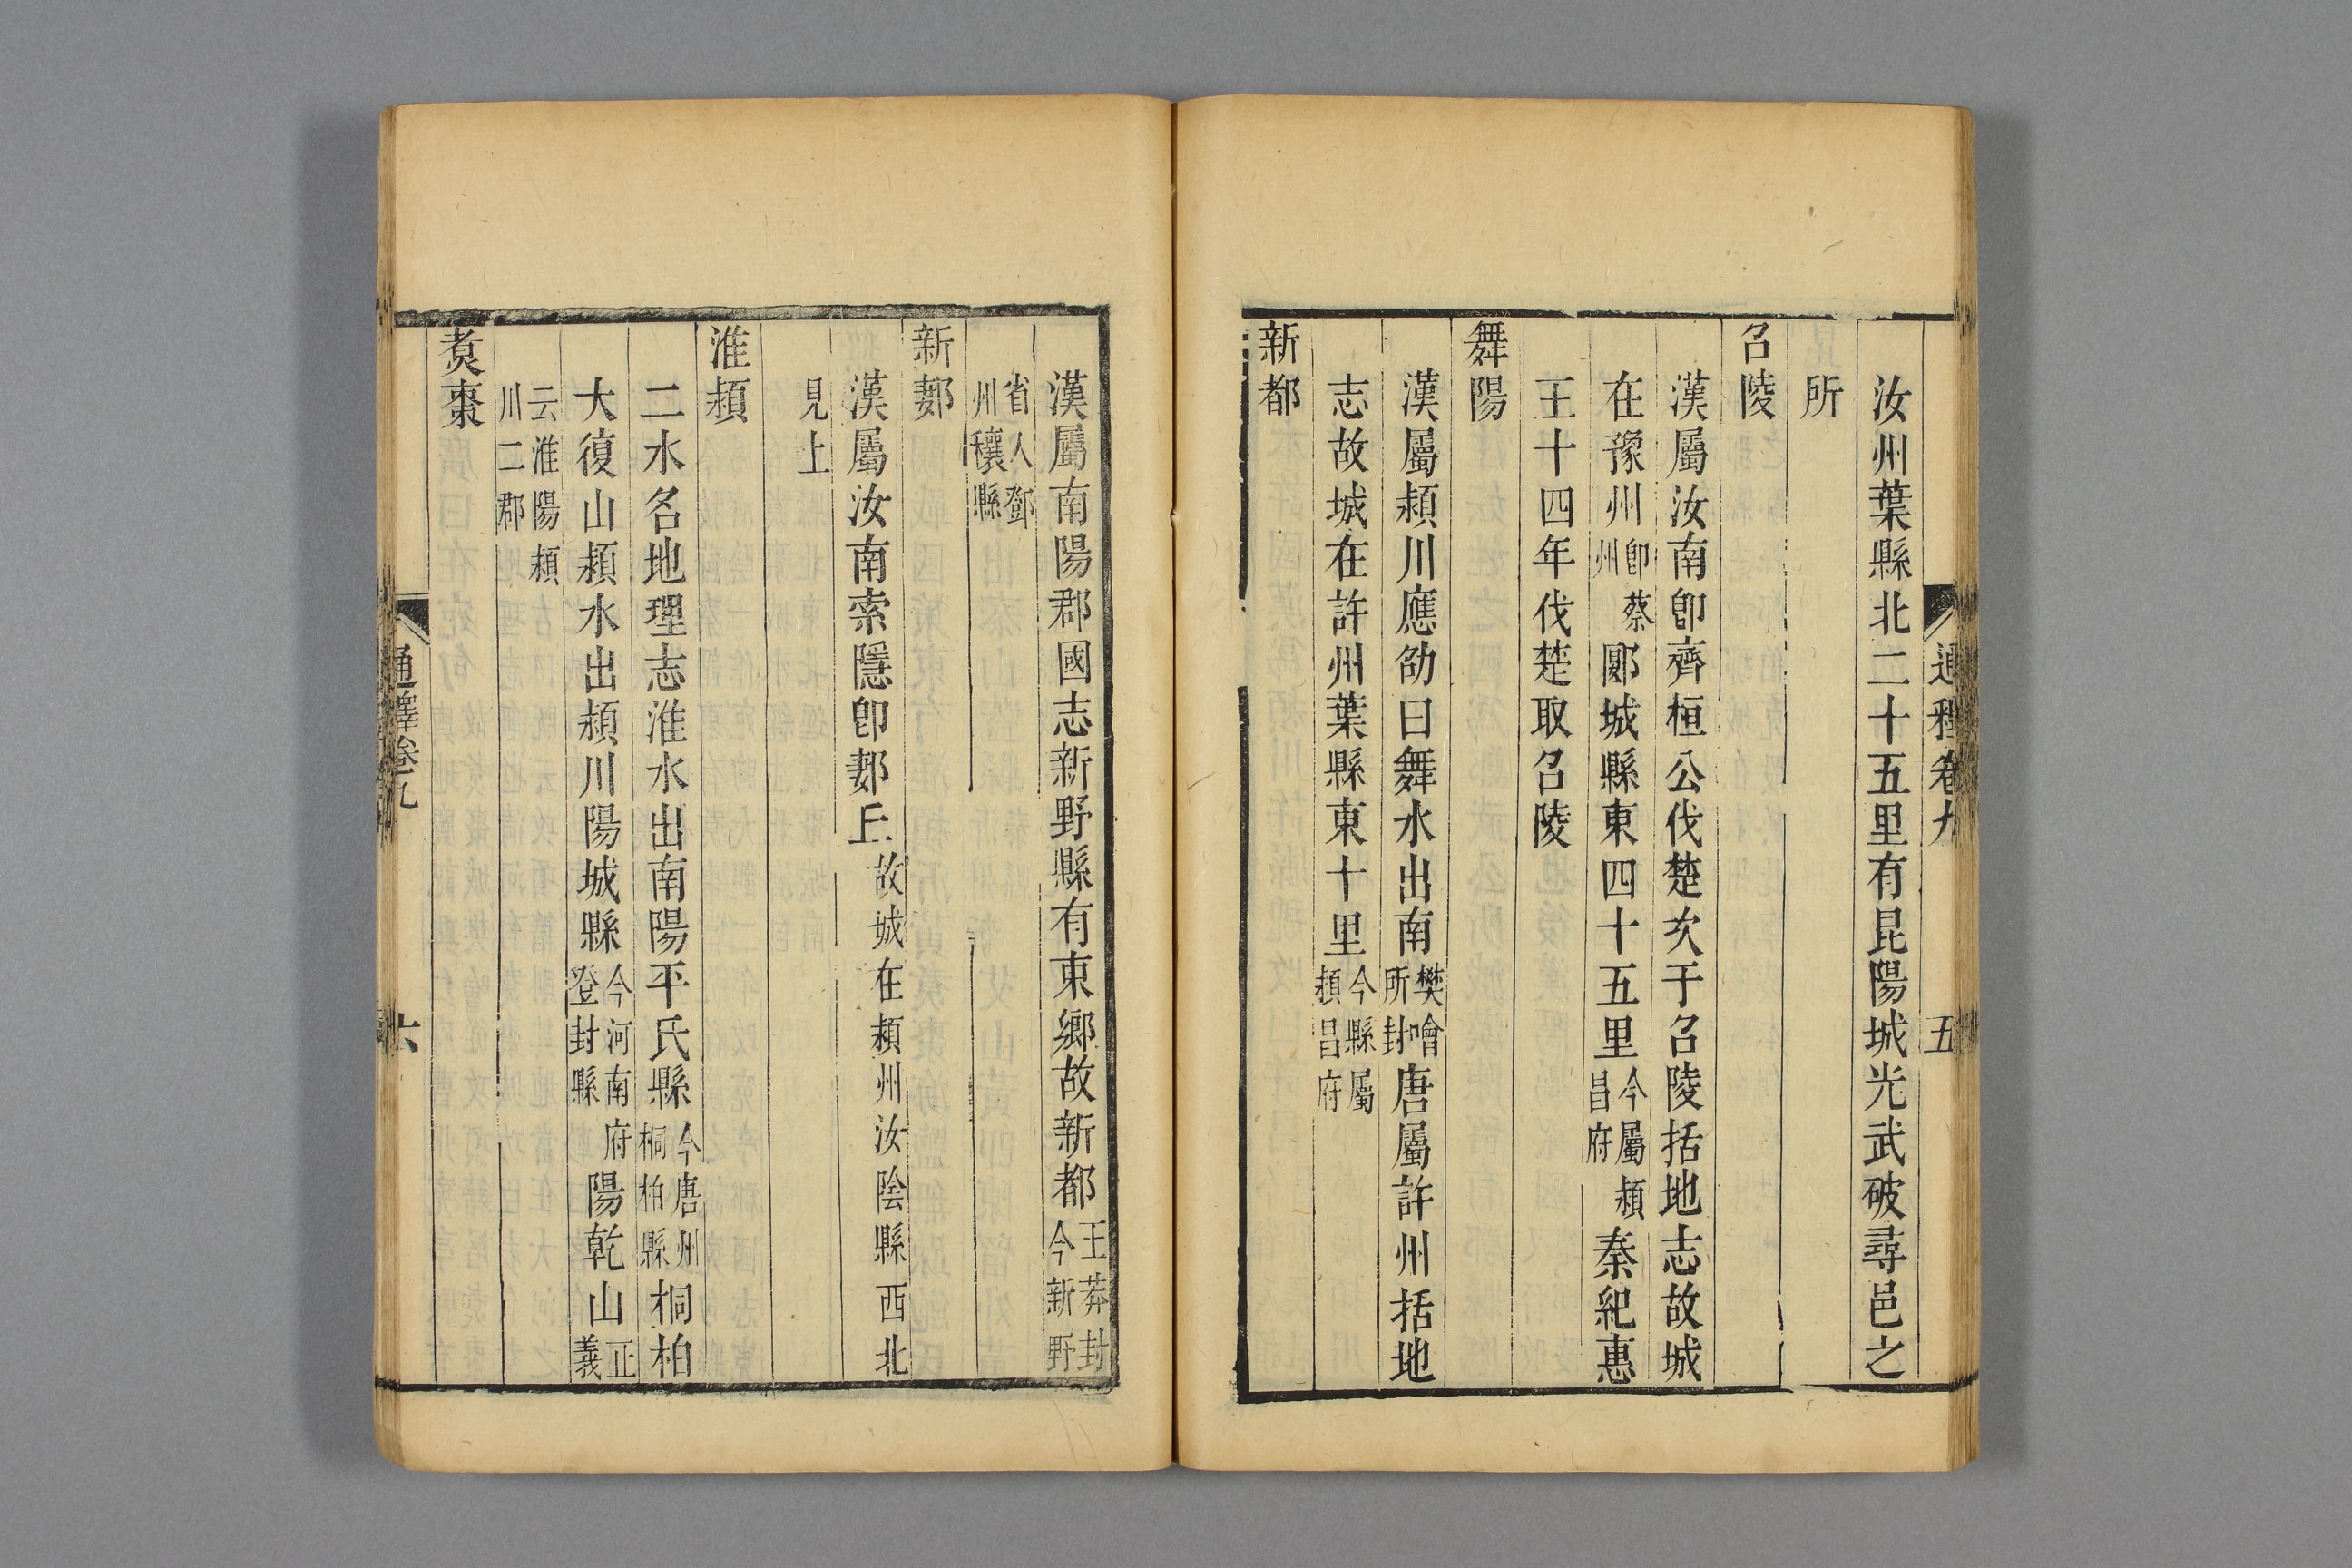 通釋卷九 五
汝州葉縣北二十五里有昆陽城光武破尋邑之
所
召陵
漢屬汝南卽齊桓公伐楚次于召陵括地志故城
在豫州卽蔡州郾城縣東四十五里今屬潁昌府秦紀惠
王十四年伐楚取召陵
舞陽
漢屬潁川應劭曰舞水出南樊噲所封唐屬許州括地
志故城在許州葉縣東十里今縣屬潁昌府
新都
漢屬南陽郡國志新野縣有東鄉故新都王莽封今新野
省入鄧州穰縣
新郪
漢屬汝南索隱卽郪丘故城在潁州汝陰縣西北
見上
淮潁
二水名地理志淮水出南陽平氏縣今唐州桐柏縣桐柏
大復山潁水出潁川陽城縣今河南府登封縣陽乾山正義
云淮陽潁川二郡
煑棗
通釋卷九 六